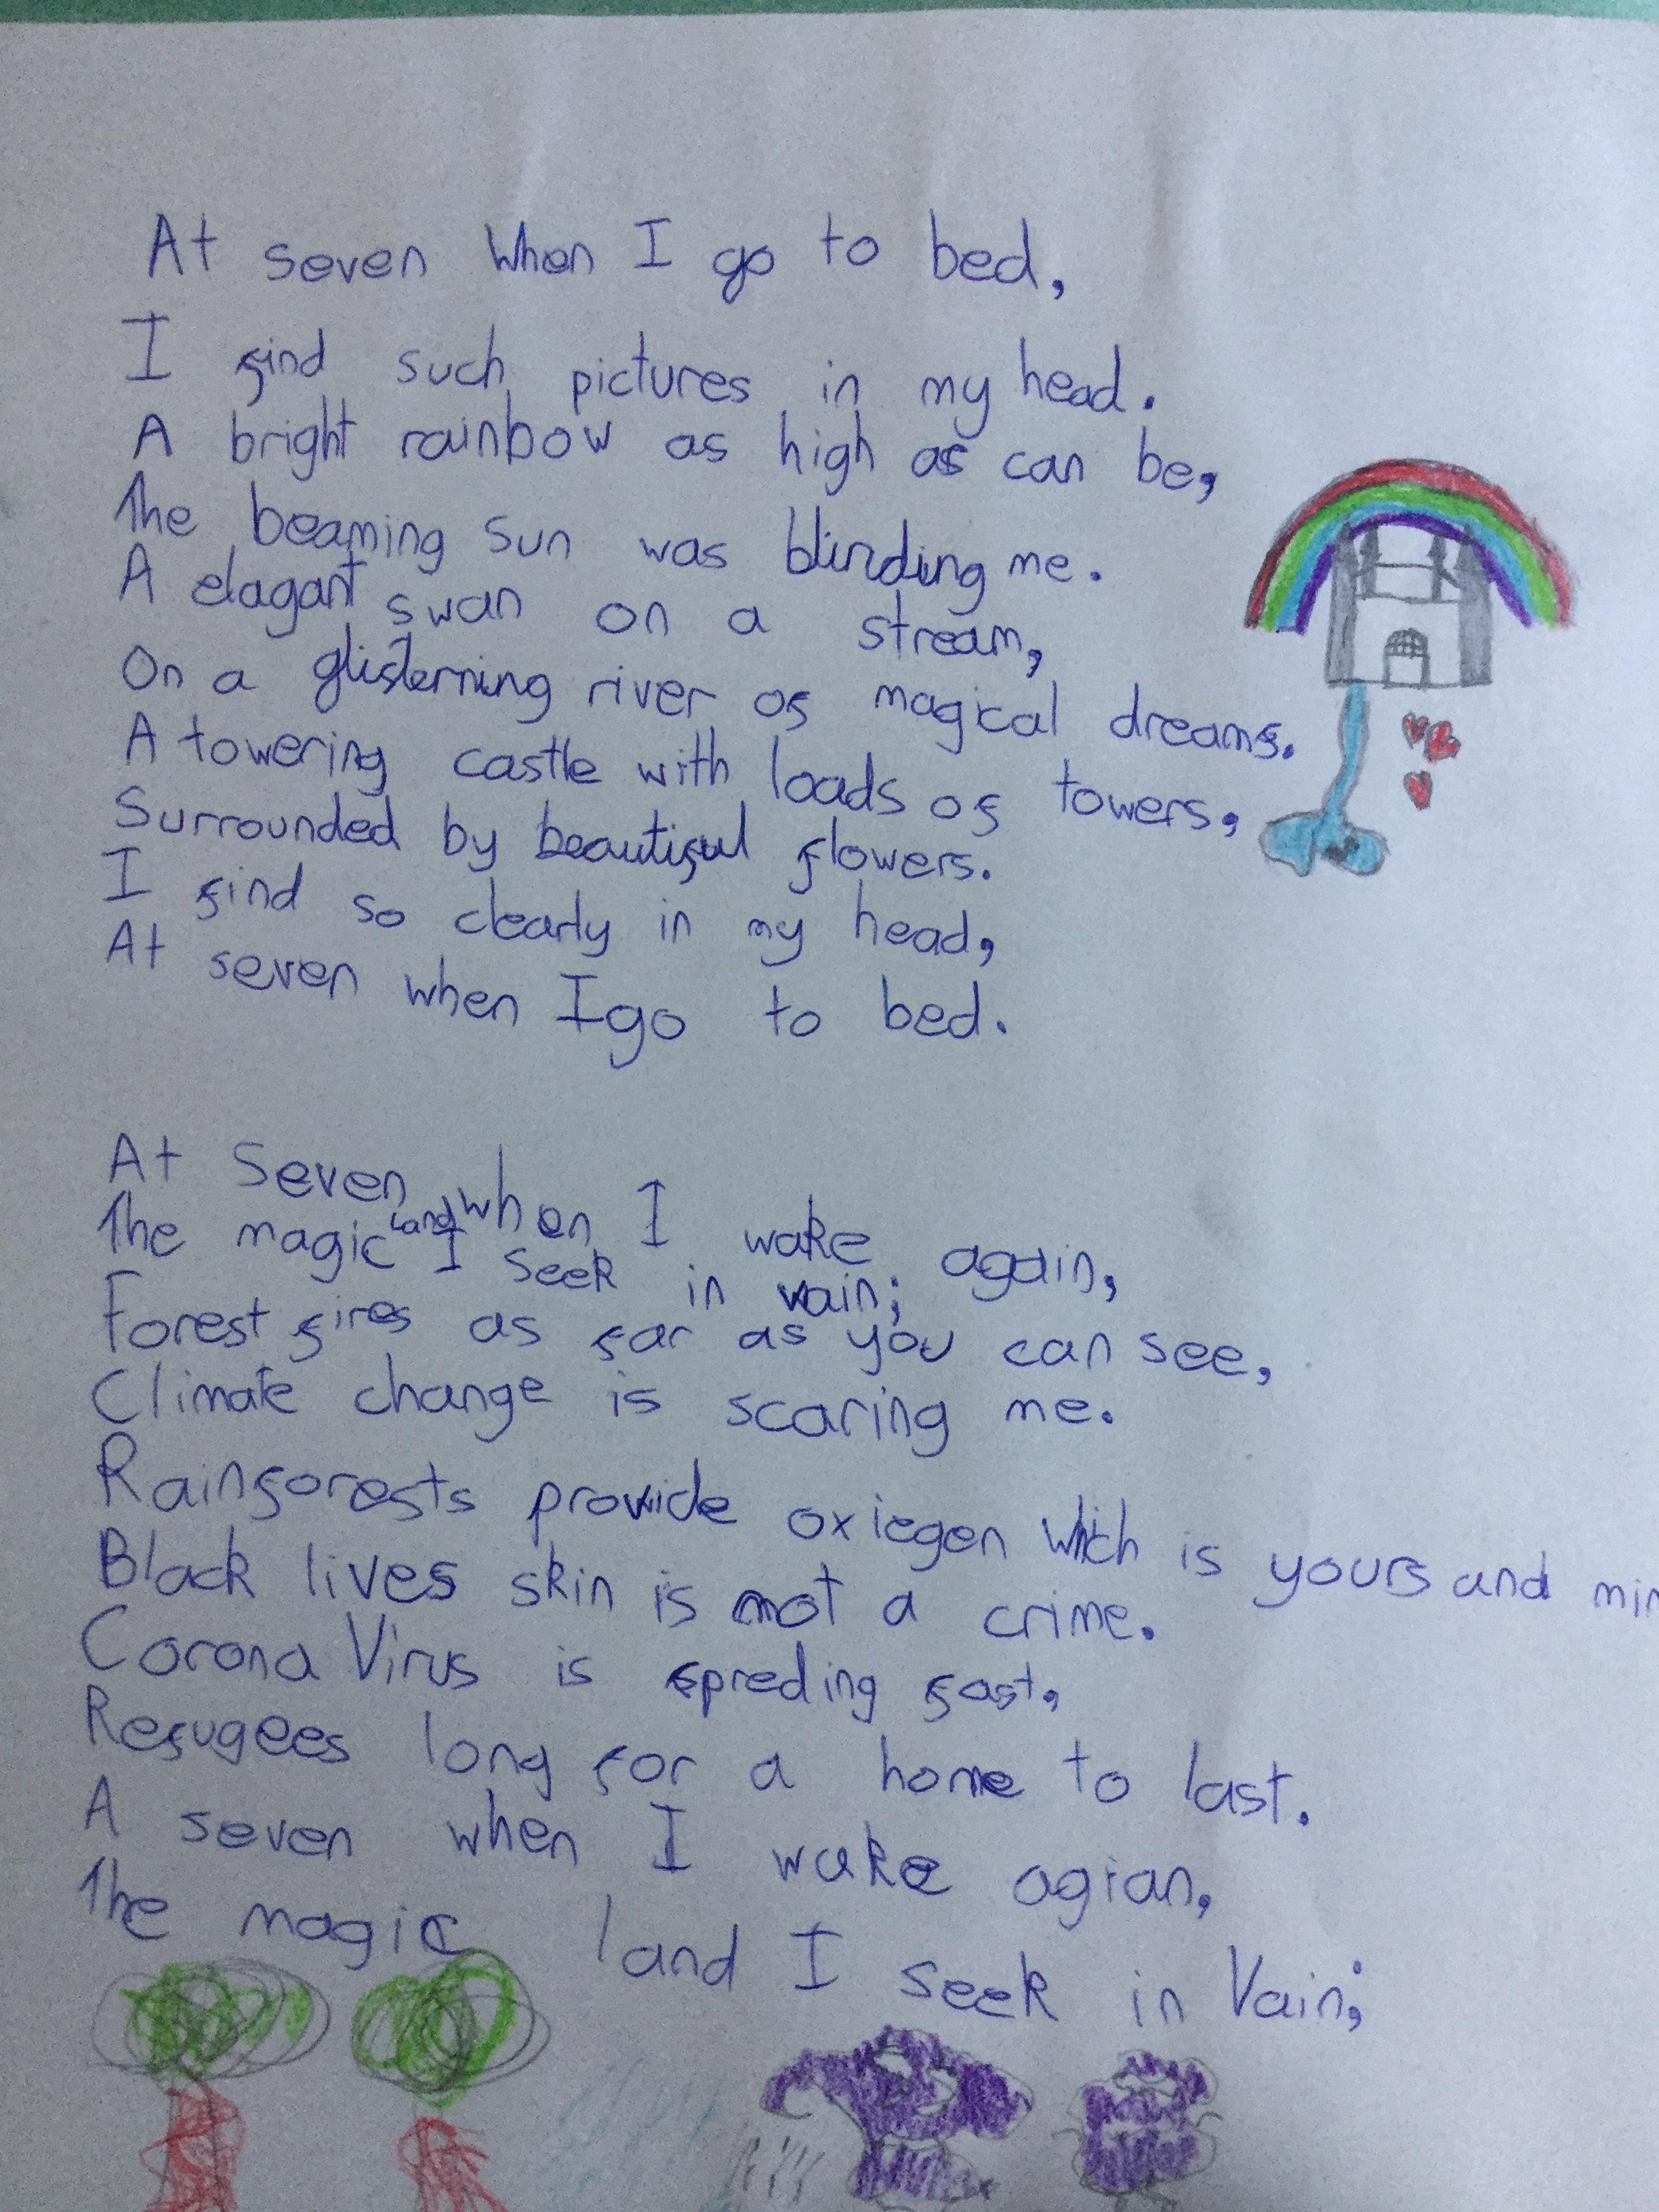 At seven When I go to bed,
I find such pictures in my head.
A bright rainbow as high as can be,
The beaming sun was blinding me.
A elagant swan on a stream,
On a glisterning river of magical dreams.
A towering castle with loads of towers,
Surrounded by beautiful flowers.
I find so clearly in my head,
At seven when I go to bed.
At Seven when I wake again,
The magic land I seek in vain;
Forest fires as far as you can see,
Climate change is scaring me.
Rainforests provide oxiegen which is yours and min
Black lives skin is not a crime.
Corona Virus is spreding fast,
Refugees long for a home to last.
A seven when I wake agian,
The magic land I seek in Vain;